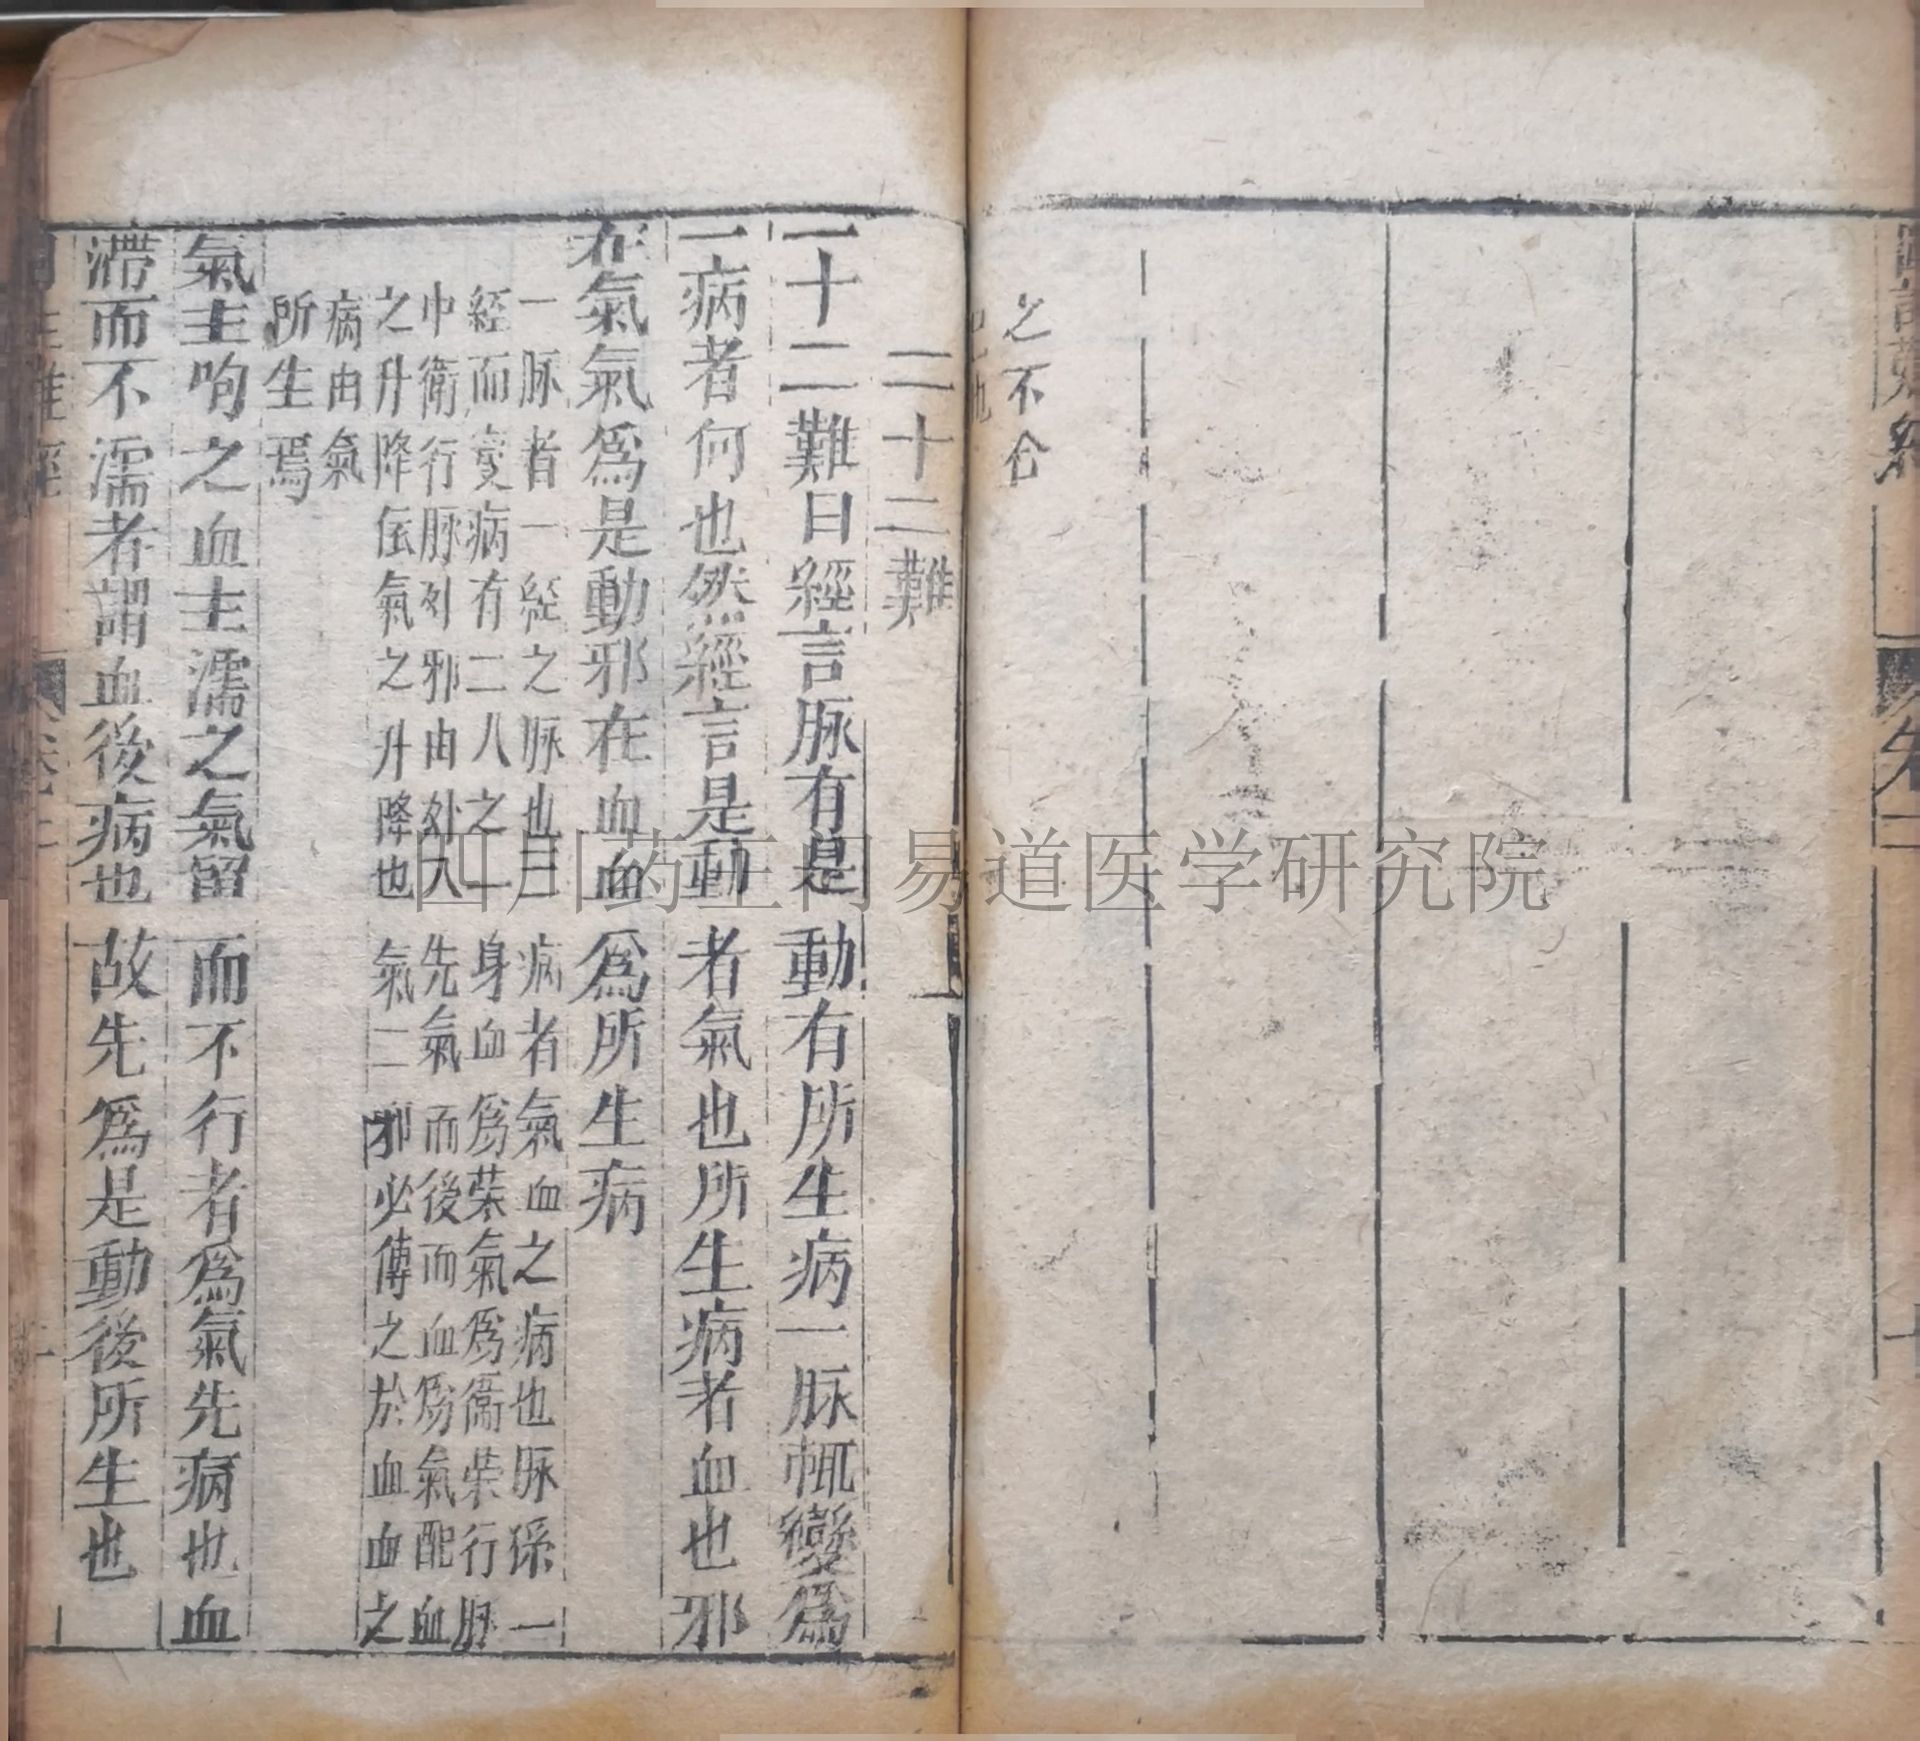 之不合
二十二難
二十二難曰經言脉有是動有所生病一脉輒變爲
二病者何也然經言是動者氣也所生病者血也邪
在氣氣爲是動邪在血血爲所生病
一脉者一經之脉也二病者氣血之病也脉係一
經而變病有二人之一身血爲荣氣爲衛荣行脉
中衛行脉外邪由外入先氣而後而血爲氣配血
之升降依氣之升降也氣二邪必傳之於血血之
病由氣
所生焉
氣主呴之血主濡之氣留而不行者爲氣先病也血
滯而不濡者謂血後病也故先爲是動後所生也
四川药王门易道医学研究院